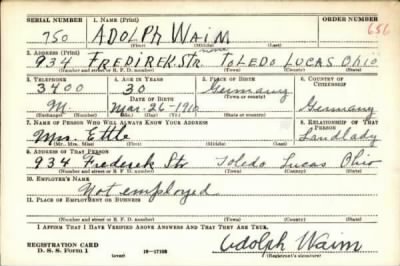 SERIAL NUMBER 1. NAME (Print) ORDER NUMBER
750 ADOLPH WAIM none 656
(First) (Middle) (Last)
2. ADDRESS (Print)
934 FREDIREK. STr. TOLEDO LUCAS OHIO
(Number and street or R. F. D. number) (Town) (County) (State)
3. TELEPHONE 4. AGE IN YEARS 5. PLACE OF BIRTH 6. COUNTRY OF CITIZENSHIP
3400 30 Germany
DATE OF BIRTH (Town or county)
M. Mar. 26-1910 Germany
(Exchange) (Number) (Mo.) (Day) (Yr.) (State or country)
7. NAME OF PERSON WHO WILL ALWAYS KNOW YOUR ADDRESS 8. RELATIONSHIP OF THAT PERSON
Mrs. Ettle Landlady
(Mr., Mrs., Miss) (First) (Middle) (Last)
9. ADDRESS OF THAT PERSON
934 Frederek Str Toledo Lucas Ohio
(Number and street or R. F. D. number) (Town) (County) (State)
10. EMPLOYER'S NAME
Not employed
11. PLACE OF EMPLOYMENT OR BUSINESS
(Number and street or R. F. D. number) (Town) (County) (State)
I AFFIRM THAT I HAVE VERIFIED ABOVE ANSWERS AND THAT THEY ARE TRUE.
REGISTRATION CARD
D. S. S. Form 1 (over) 16—17105 Adolph Waim
(Registrant's signature)